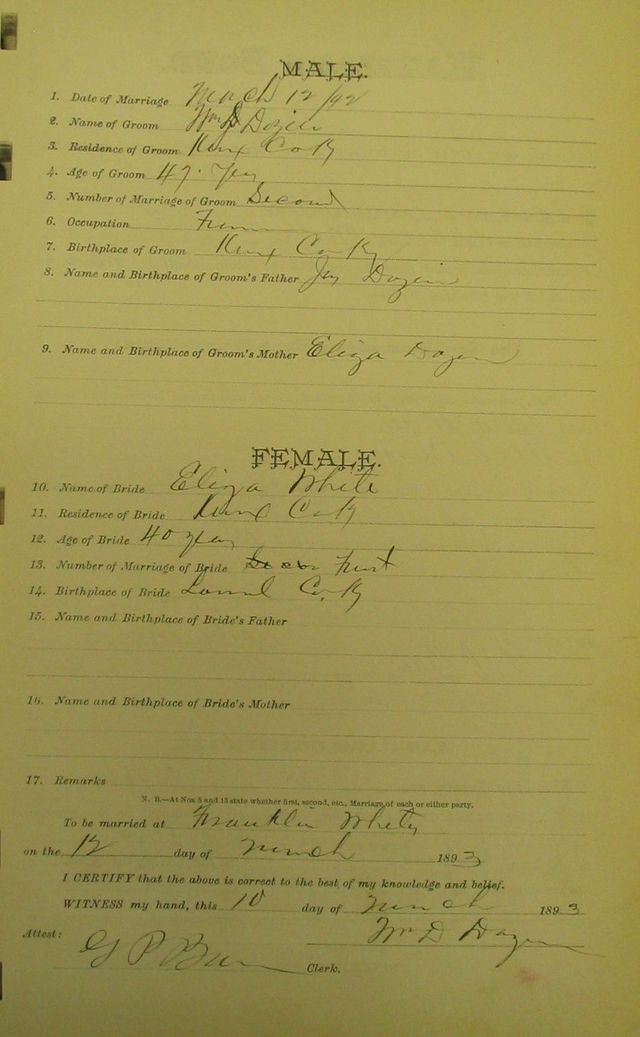 MALE.
1. Date of Marriage March 12/92
2. Name of Groom Wm D Dozier
3. Residence of Groom Knox Co Ky
4. Age of Groom 47
5. Number of Marriage of Groom Second
6. Occupation
7. Birthplace of Groom Knox Co Ky
8. Name and Birthplace of Groom's Father Dozier
9. Name and Birthplace of Groom's Mother Eliza Dozier
FEMALE.
10. Name of Bride Eliza White
11. Residence of Bride Knox Co Ky
12. Age of Bride 40 years
13. Number of Marriage of Bride First
14. Birthplace of Bride Laurel Co. Ky
15. Name and Birthplace of Bride's Father
16. Name and Birthplace of Bride's Mother
17. Remarks
N. B.—At Nos 5 and 13 state whether first, second, etc., Marriage of each or either party.
To be married at Franklin Whites
on the 12 day of March 1893
I CERTIFY that the above is correct to the best of my knowledge and belief.
WITNESS my hand, this 10 day of March 1893
Wm D Dozier
Attest:
G P Clerk.